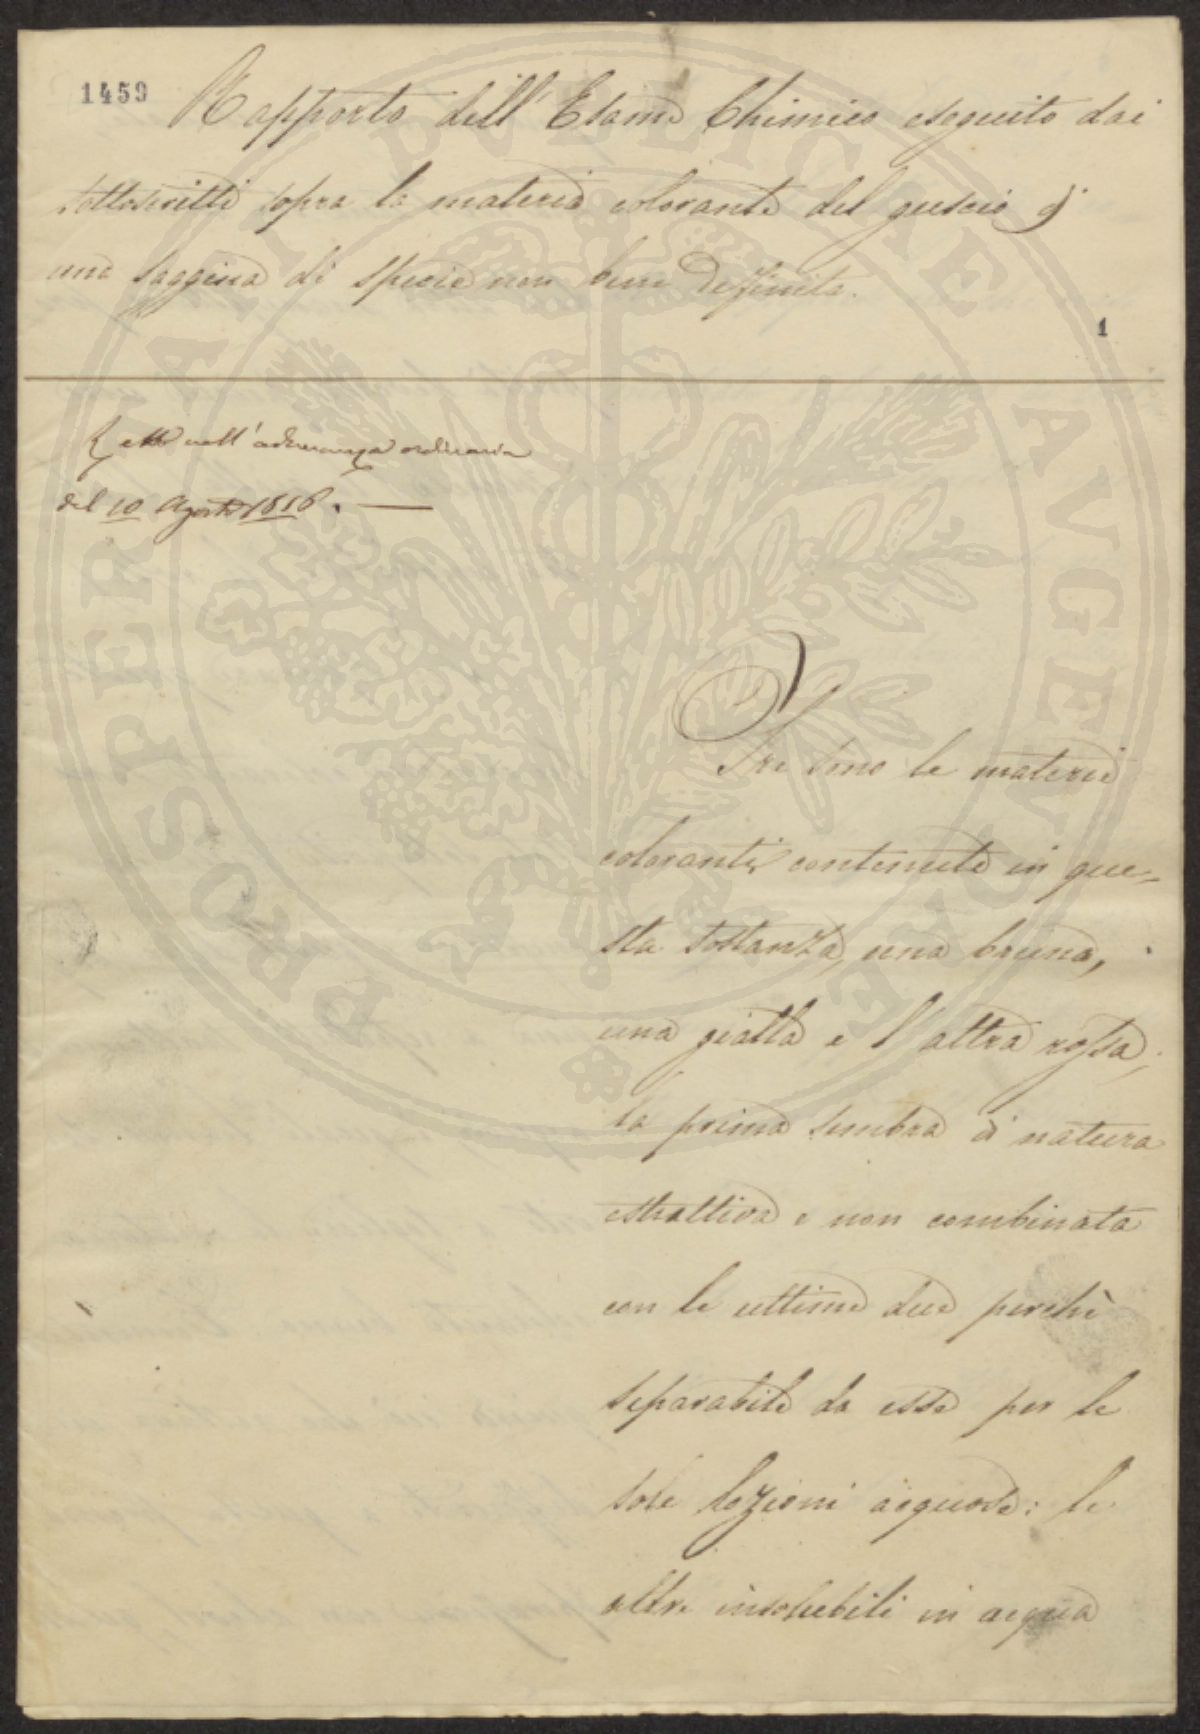 1459
Rapporto dell'Esame Chimico eseguito dai
sottoscritti sopra la materia colorante del guscio di
una saggina di specie non bene definita.
1
Letto nell'adunanza ordinaria
del 10 Agosto 1816. —
Tre sono le materie
coloranti contenute in que-
sta sostanza, una bruna,
una gialla e l'altra rossa;
la prima sembra di natura
estrattiva e non combinata
con le ultime due perchè
separabile da esse per le
sole lozioni acquose: le
altre insolubili in acqua
PROSPERITATI PUBLICAE AVGENDAE